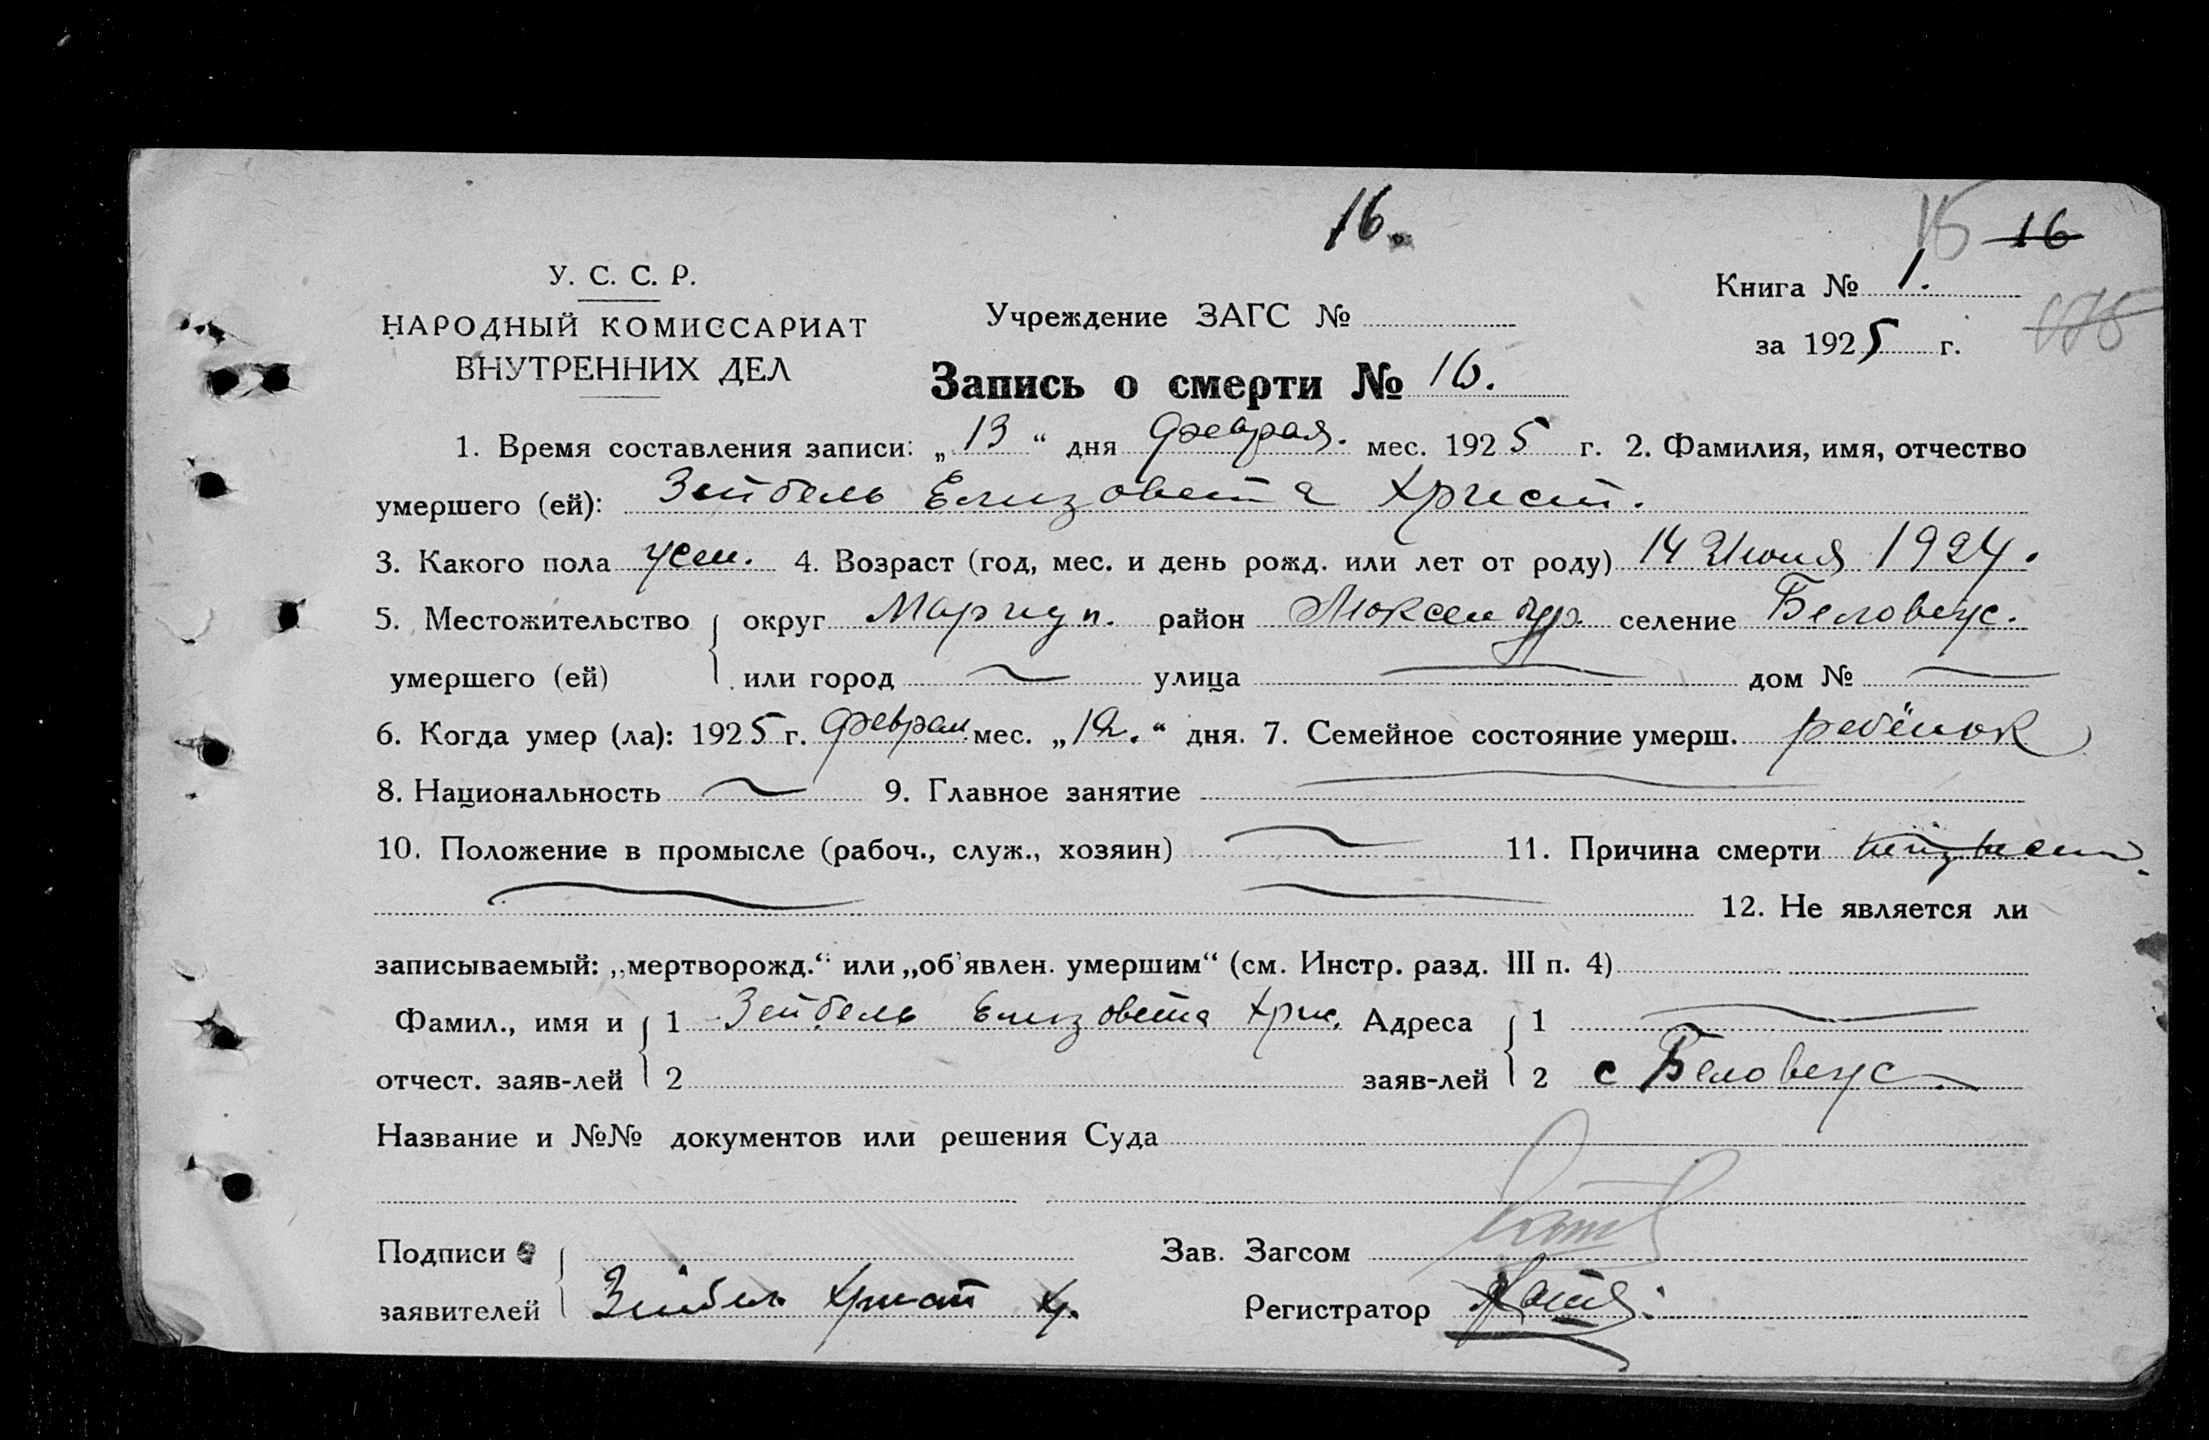 16.
15 16
У. С. С. Р.
НАРОДНЫЙ КОМИССАРИАТ
ВНУТРЕННИХ ДЕЛ
Учреждение ЗАГС №
Книга № 1.
за 1925 г.
Запись о смерти № 16.
1. Время составления записи: „13“ дня февраля. мес. 1925 г. 2. Фамилия, имя, отчество
умершего (ей): Зейбель Елизовета Христ.
3. Какого пола жен. 4. Возраст (год, мес. и день рожд. или лет от роду) 14 Июня 1924.
5. Местожительство округ Мариуп. район селение Беловеж.
умершего (ей) или город улица дом №
6. Когда умер (ла): 1925 г. феврал. мес. „12.“ дня. 7. Семейное состояние умерш. ребёнок
8. Национальность 9. Главное занятие
10. Положение в промысле (рабоч., служ., хозяин) 11. Причина смерти неизвест.
12. Не является ли
записываемый: „мертворожд.“ или „об'явлен. умершим“ (см. Инстр. разд. III п. 4)
Фамил., имя и 1 Зейбель Елизовета Хрис. Адреса 1
отчест. заяв-лей 2 заяв-лей 2 с Беловеж.
Название и №№ документов или решения Суда
Подписи Зав. Загсом
заявителей Зейбель Христ Х. Регистратор